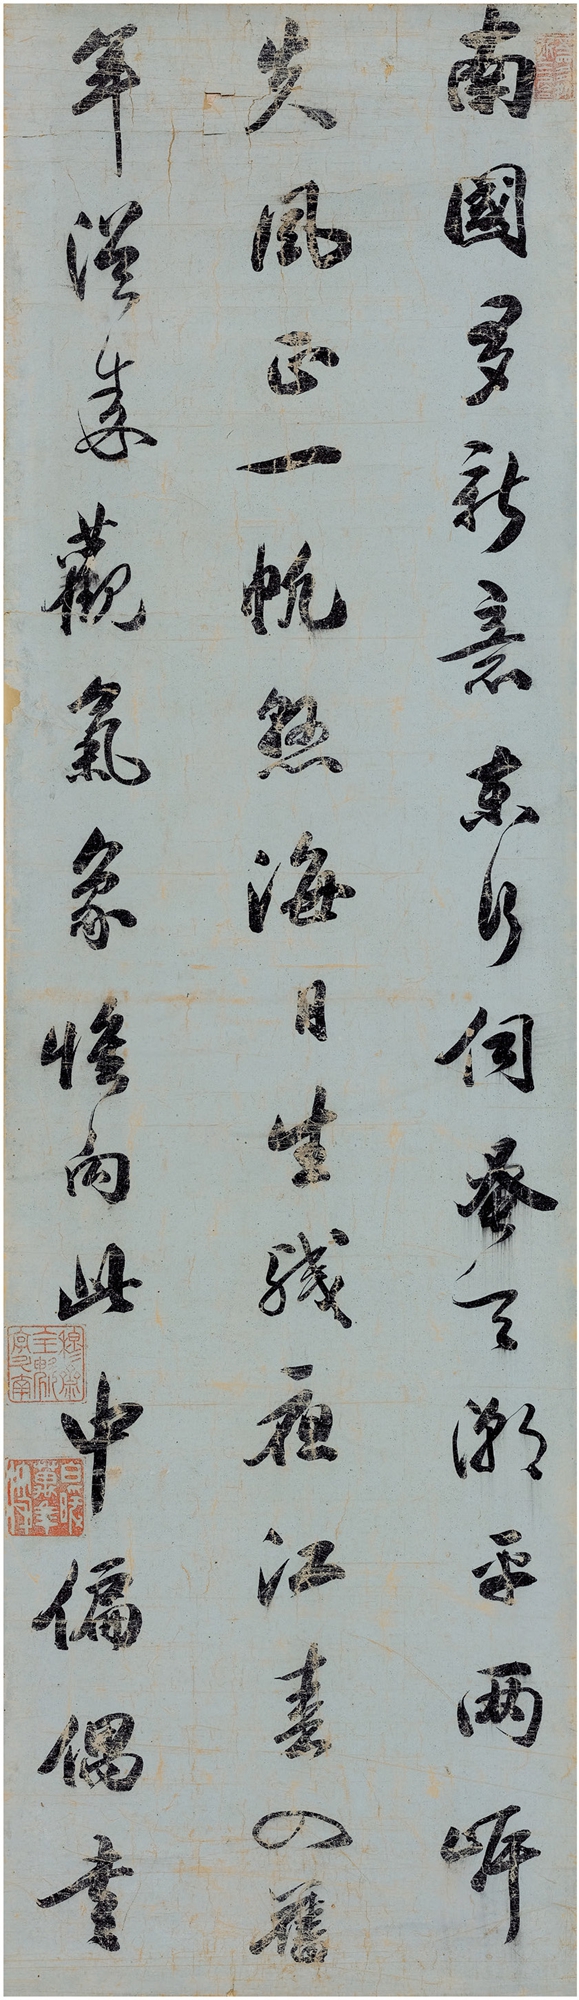 南國多新意東行伺蚤天潮平两岸
失風正一帆懸海日生殘夜江春入舊
年從來觀氣象惟向此中偏偶書